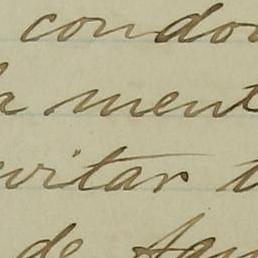 condo
a ment
vitar t
de